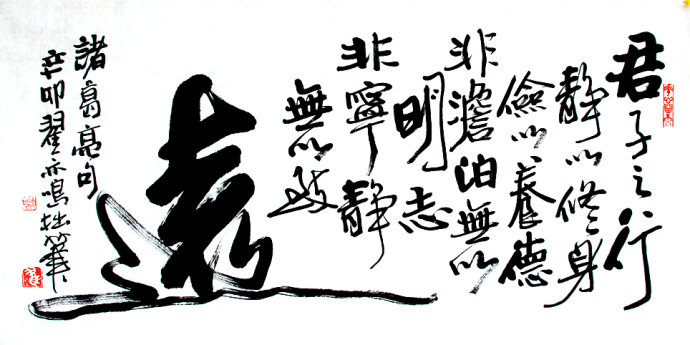 君子之行
静以修身
儉以養德
非澹泊無以
明志
非寧静
無以致
遠
諸葛亮句
辛卯翟亦鳴拙筆